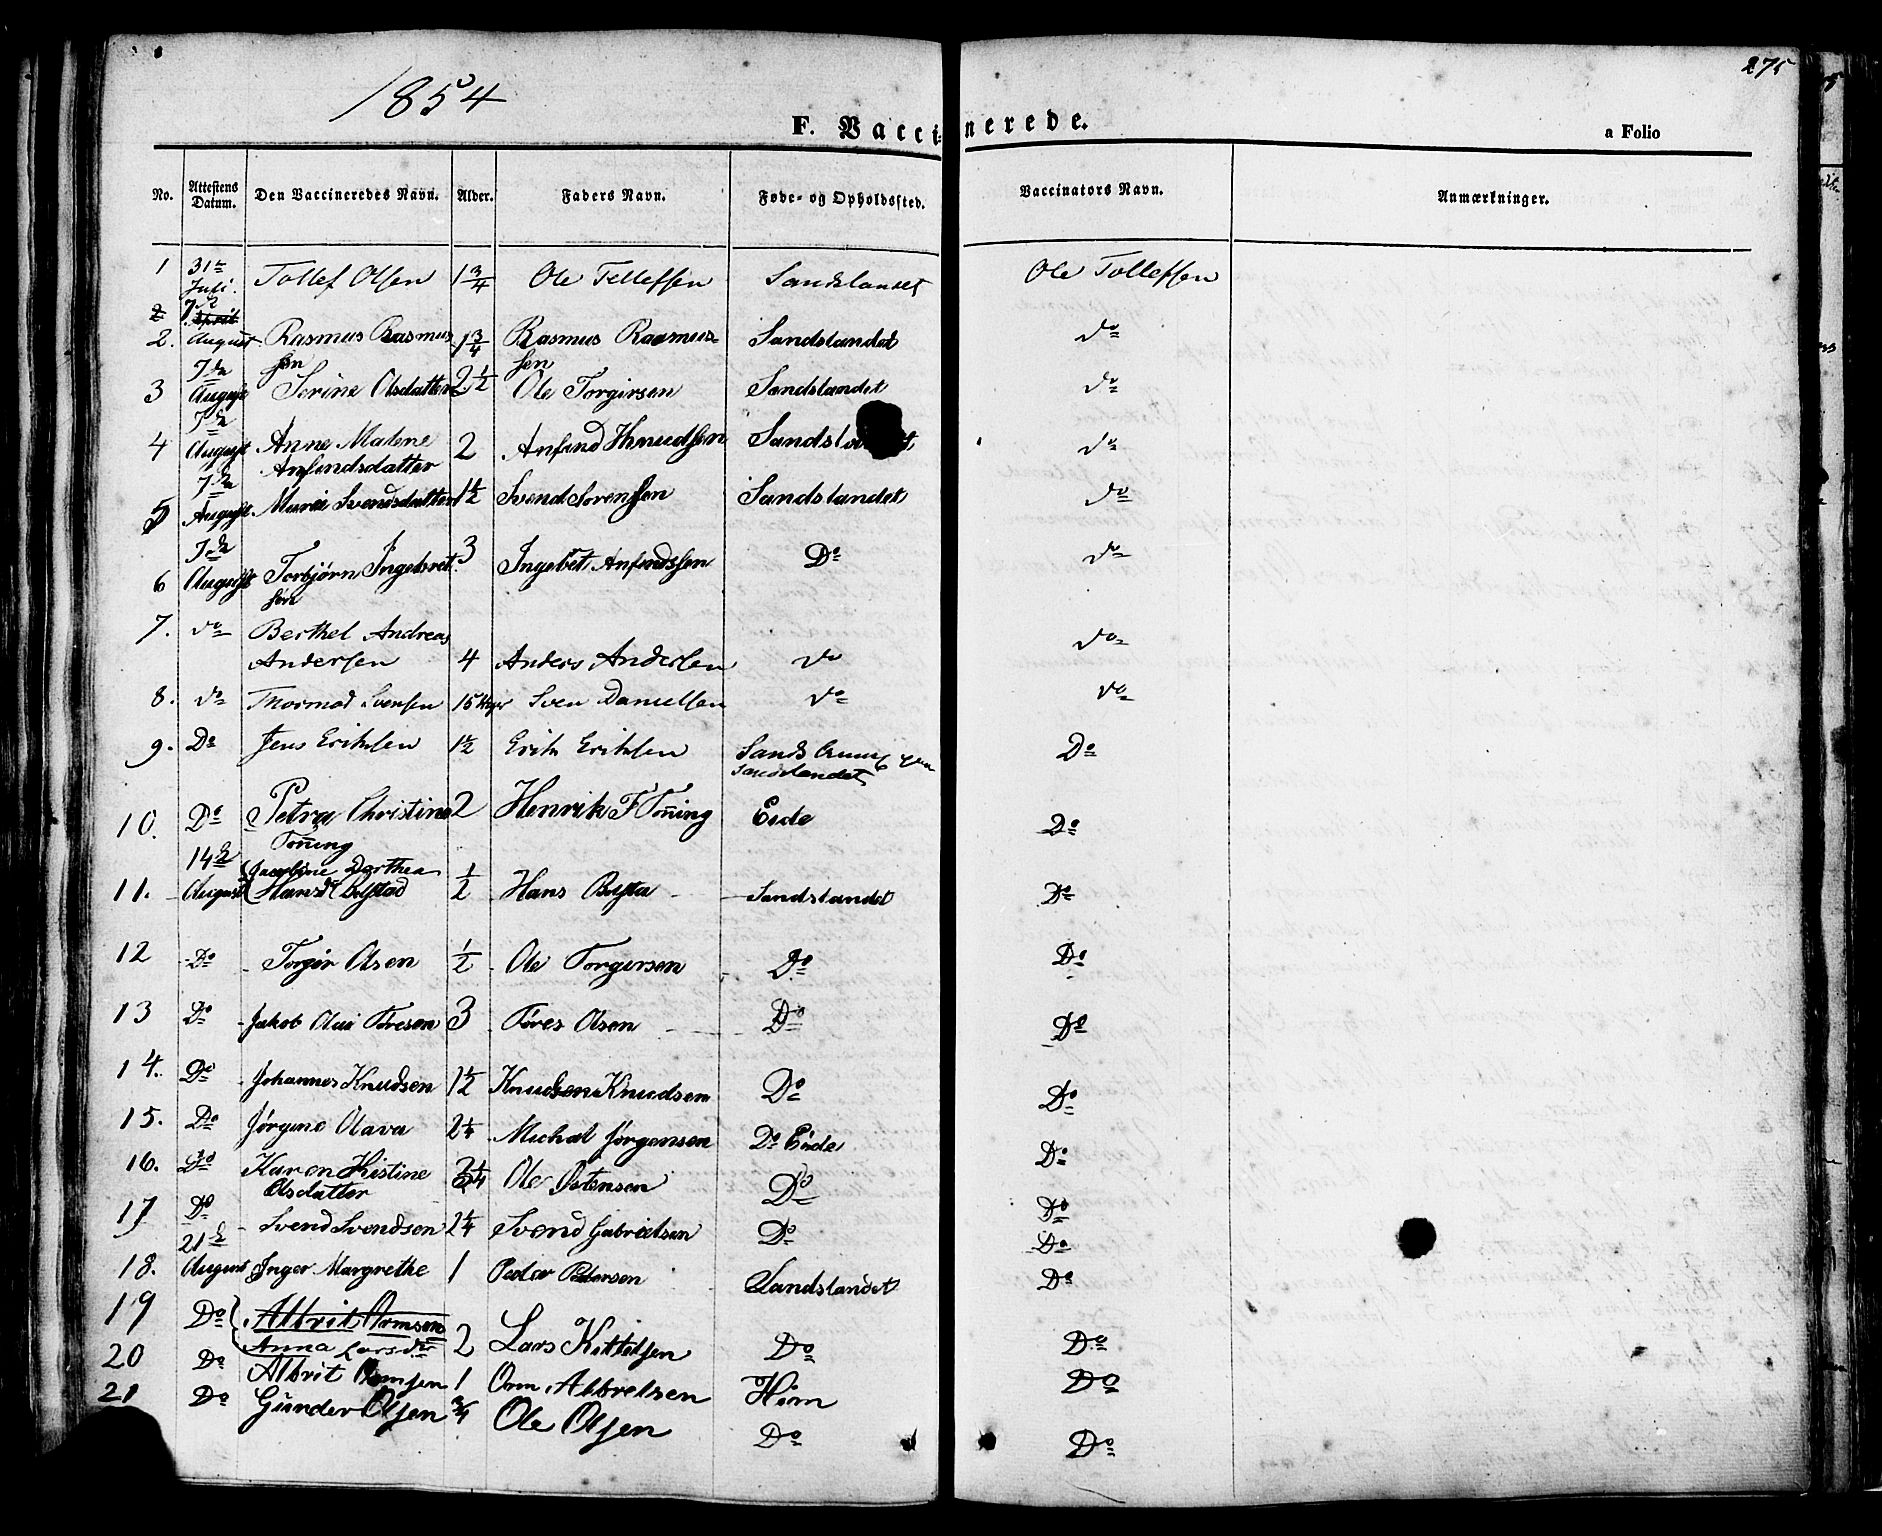 275
1854
F. Vaccinerede.
a Folio
No. Attestens Datum. Den Vaccineredes Navn. Alder. Faders Navn. Føde- og Opholdssted. Vaccinators Navn. Anmærkninger.
1 31te Juli. Tollef Olsen 1 3/4 Ole Tellefsen Sandslandet Ole Tollefsen
2 7de
2. August Rasmus Rasmussen 1 3/4 Rasmus Rasmussen Sandslandet do
3 7de August Serine Olsdatter 2 1/2 Ole Torgirsen Sandslandet do
4 7de August Anne Malene Anfindsdatter 2 Anfind Knudsen Sandslandet do
5 7de August Maren Svendsdatter 1 1/2 Svend Sorensen Sandslandet do
6 7de August Torbjørn Ingebretsøn 3 Ingebret Anfindssen Do do
7. do Berthel Andreas Andersen 4 Anders Andersen do do
8. do Thormod Svensen 15 Sven Danielsen do do
9. Do Jens Eriksen 1 1/2 Erik Eriksen Sands Sandslandet Do
10. Do Petra Christine Tom̄ing 2 Henrik F Tom̄ing Eide Do
11. 14de August Dorthea Hansdt Bustad 1/2 Hans Sandslandet Do
12 Do Torgir Olsen 1/2 Ole Torgersen Do Do
13 Do Jakob Olai Toresen 3 Tores Olsen Do Do
14. Do Johannes Knudsen 1 1/2 Knudsen Knudsen Do Do
15. Do Jørgine Olava 2 1/4 Michal Jørgensen Do Eide Do
16. Do Karen Kistine Olsdatter 1/4 Ole Ostensen Do Do
17 Do Svend Svendsen 2 1/4 Svend Gabrielsen Do Do
18. 21de August Inger Margrethe 1 Peder Pedersen Sandslandet Do
19 Do Albrit Ormsen
Anna Larsdtr 2 Lars Kittelsen Do Do
20 Do Albrit Ormsen 1 Orm Albretsen Him Do
21 Do Gunder Olsen 3/4 Ole Olsen Do Do